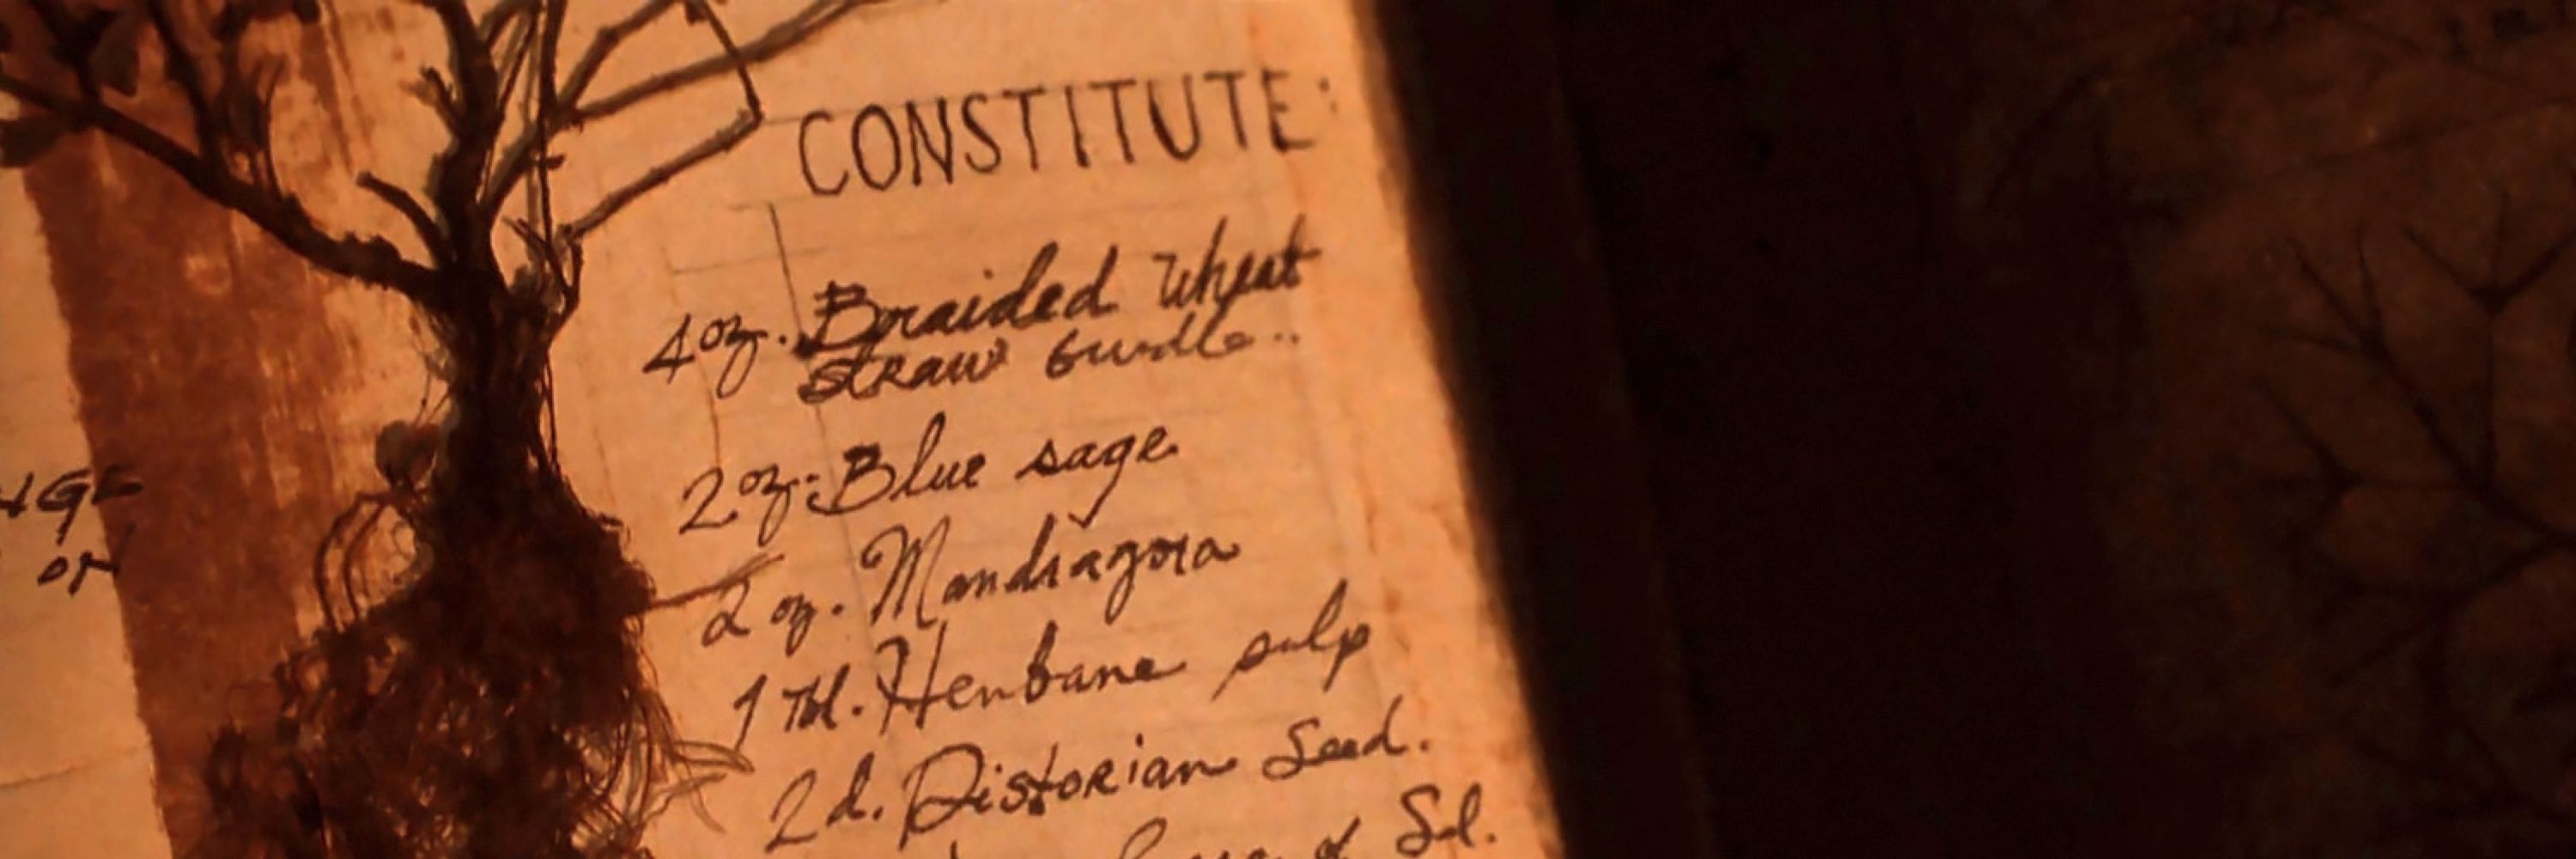 CONSTITUTE:
4 oz. Braided wheat
straw bundle..
2 oz. Blue sage
2 oz. Mandragora
1 Tbl. Henbane pulp
2 d. Distorian Seed.
of Sol.
ON